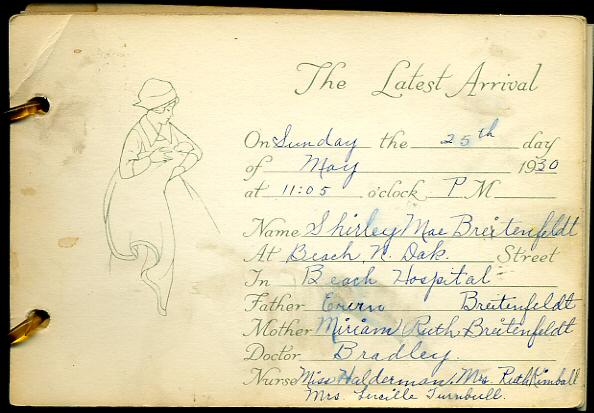 The Latest Arrival
On Sunday the 25th day
of May 1930
at 11:05 o'clock P M
Name Shirley Mae Breitenfeldt
At Beach, N. Dak. Street
In Beach Hospital
Father Breitenfeldt
Mother Miriam Ruth Breitenfeldt
Doctor Bradley.
Nurse Miss Halderman, Mrs. Ruth Kimball
Mrs. Lucille Turnbull.